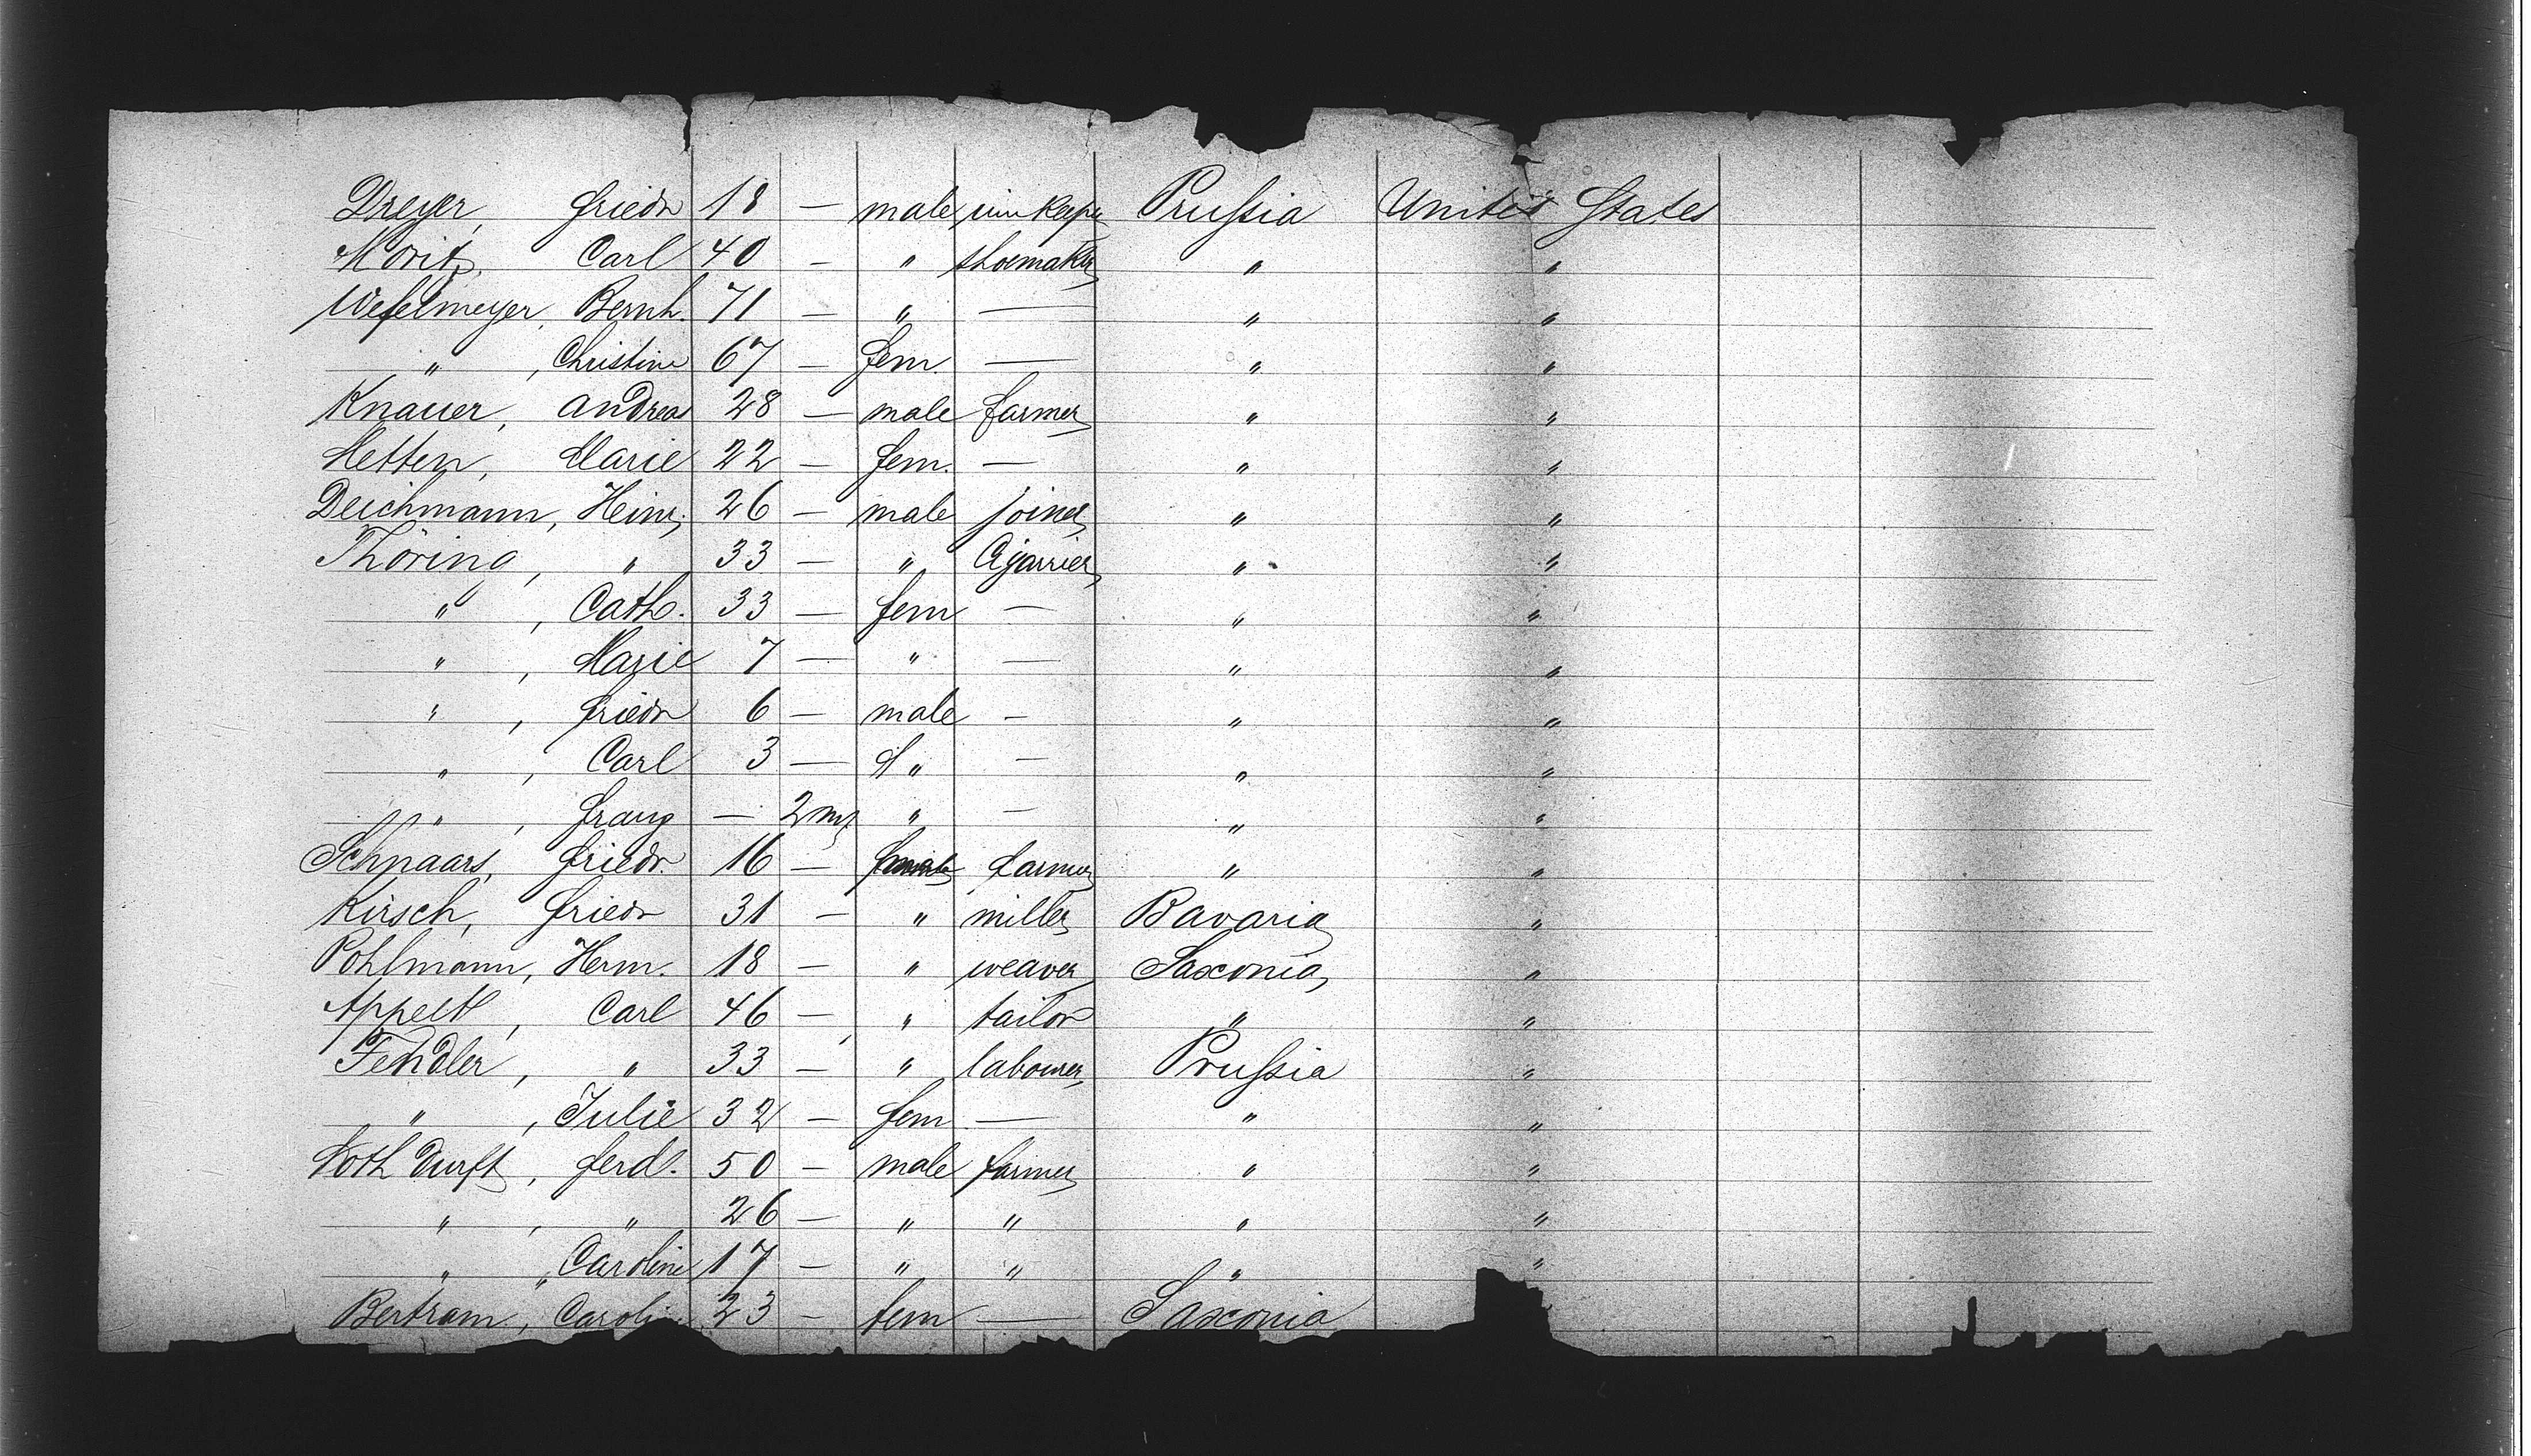 Dreyer, Friedr 18 — male innkeeper Prussia United States
Moritz, Carl 40 — " shoemaker " "
Wefelmeyer, Bernh. 71 — " — " "
" , Christine 67 — fem. — " "
Knauer, Andreas 28 — male farmer " "
Hetten, Marie 22 — fem. — " "
Deichmann, Heinr. 26 — male joiner " "
Thöring, " 33 — " " "
" , Cath. 33 — fem — " "
" , Marie 7 — " — " "
" , Friedr 6 — male — " "
" , Carl 3 — " — " "
" , Franz — 2 m " — " "
Schnaars, Friedr. 16 — farmer " "
Kirsch, Friedr 31 — " miller Bavaria "
Pohlmann, Herm. 18 — " weaver Saxonia "
Appelt, Carl 46 — " tailor " "
Fendler, " 33 — " labourer Prussia "
" , Julie 32 — fem — " "
Nothdurft, Ferd. 50 — male farmer " "
" , " 26 — " " " "
" , Caroline 17 — " " " "
Bertram, Carolin 23 — fem — Saxonia